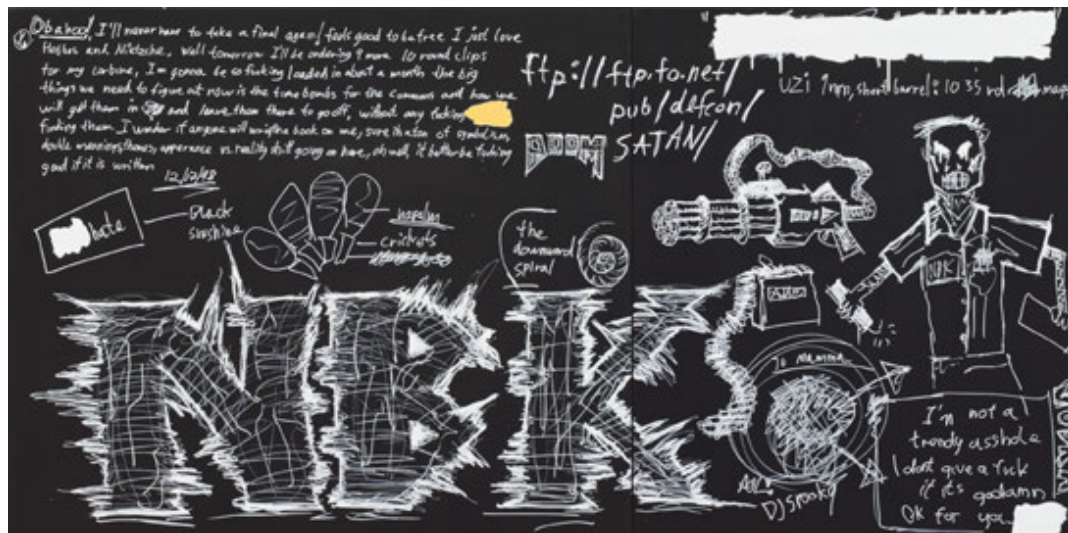 bahoo, I'll never have to take a final again! feels good to be free I just love
Hobbes and Nietzche, well tomorrow I'll be ordering 9 more 10 round clips
for my carbine, I'm gonna be so fucking loaded in about a month the big
things we need to figure out now is the time bombs for the commons and how we
will get them in and leave them there to go off, without any fucking
fucking them. I wonder if anyone will write a book on me, sure is a ton of symbolism,
double meanings, themes, apperance vs. reality shit going on here, oh well, it better be fucking
good if it is written
12/17/98
ftp://ftp.fo.net/
pub/defcon/
SATAN/
UZI 9mm, short barrel: 10 35 rd mags
DOOM
hate
Black
sunshine
napalm
crickets
the
downward
spiral
NBK
NBK
Yo Mamma
DJ Spooky
I'm not a
trendy asshole
I dont give a fuck
if it's godamn
OK for you